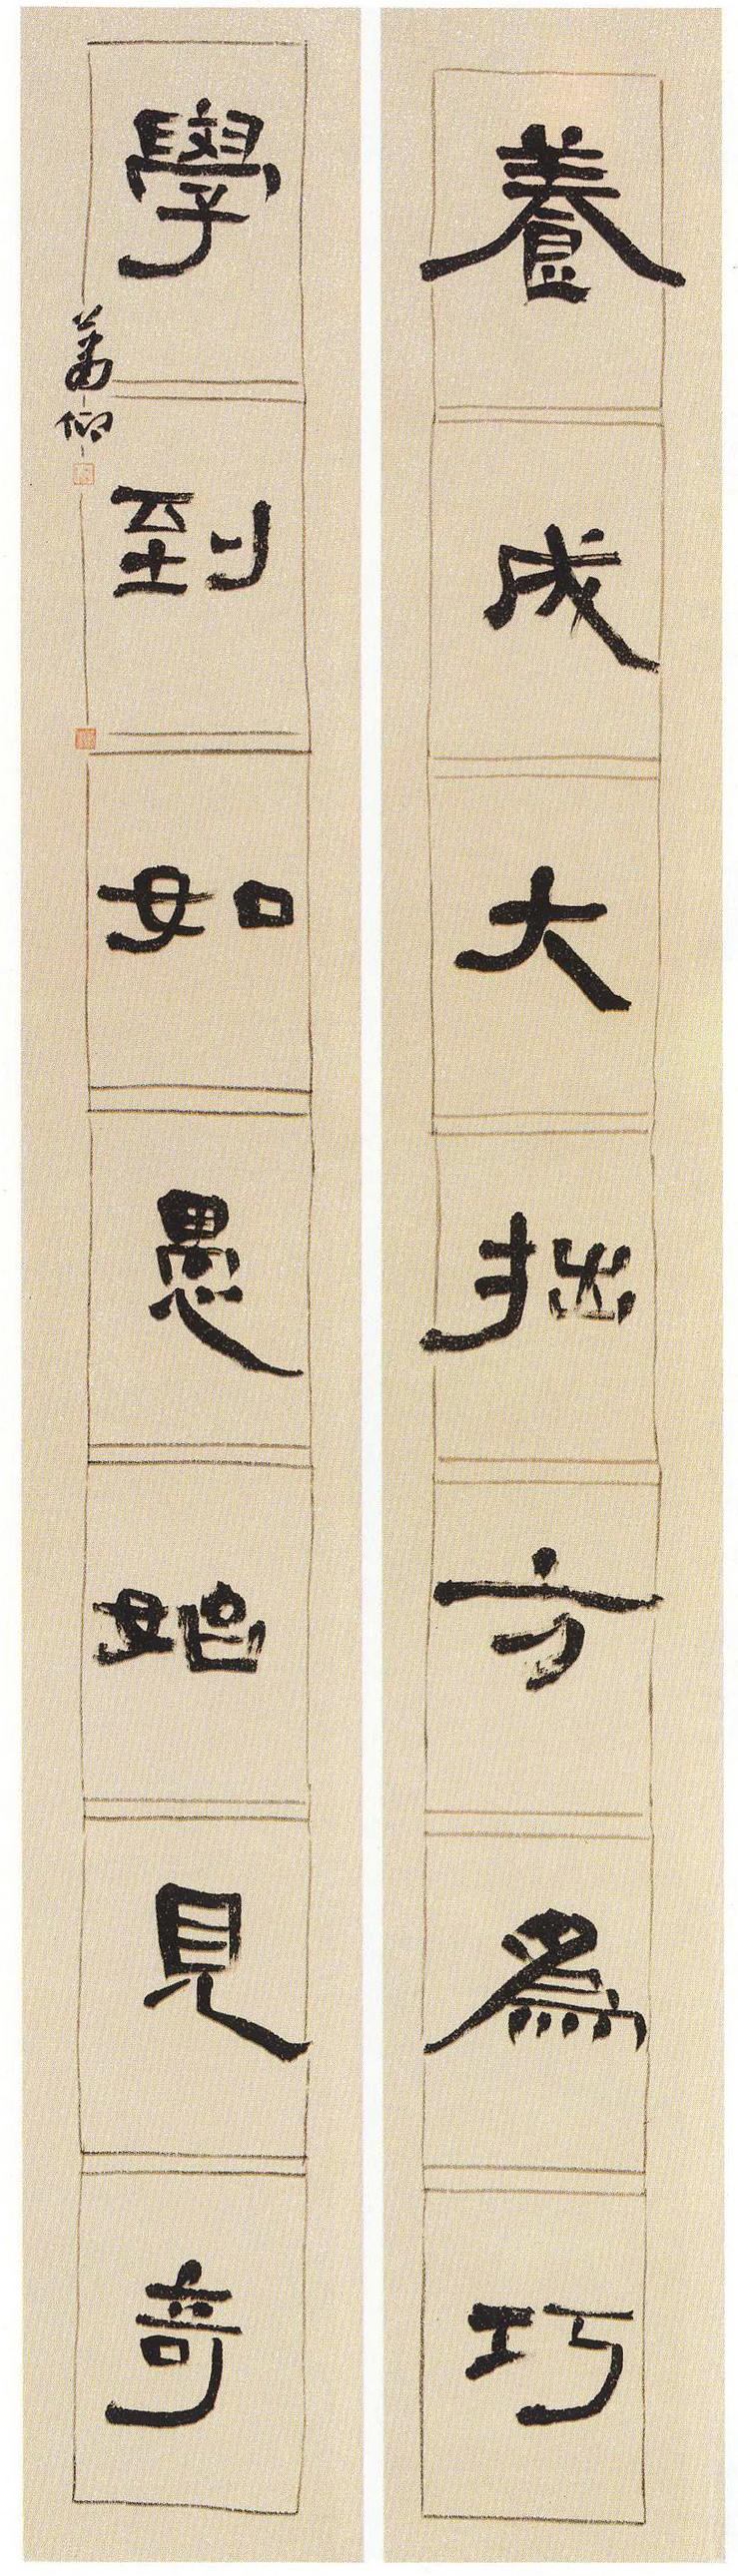 養成大拙方爲巧
學到如愚始見奇